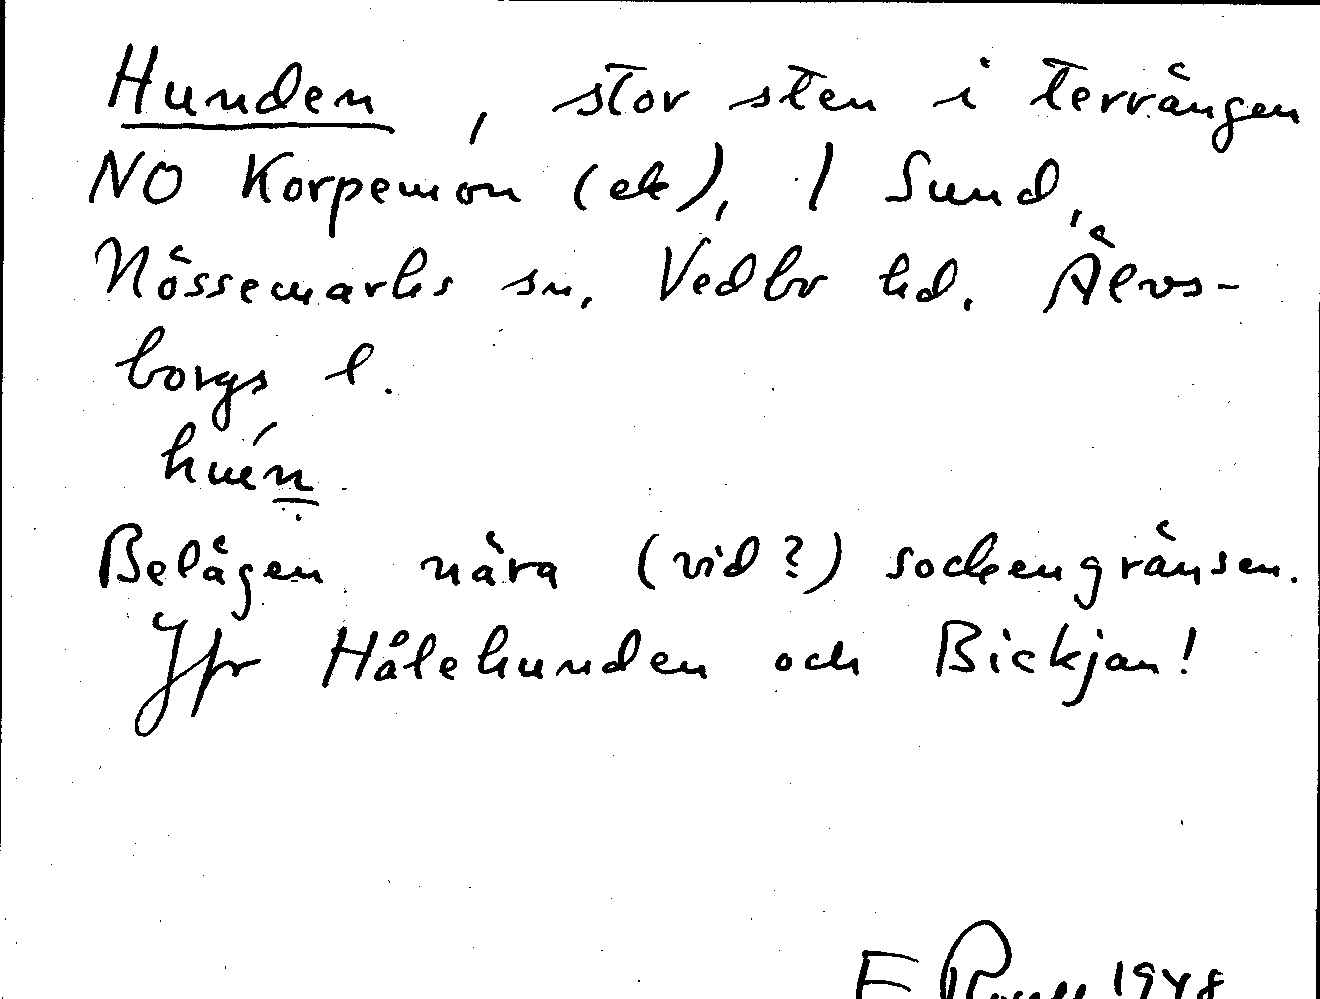 Hunden, stor sten i terrängen
NO Korpemon (ek), / Sund,
Nössemarks sn, Vedbo hd. Älvs-
borgs l.
huén
Belägen nära (vid?) sockengränsen.
Jfr Hålehunden och Bickjan!
E 1948